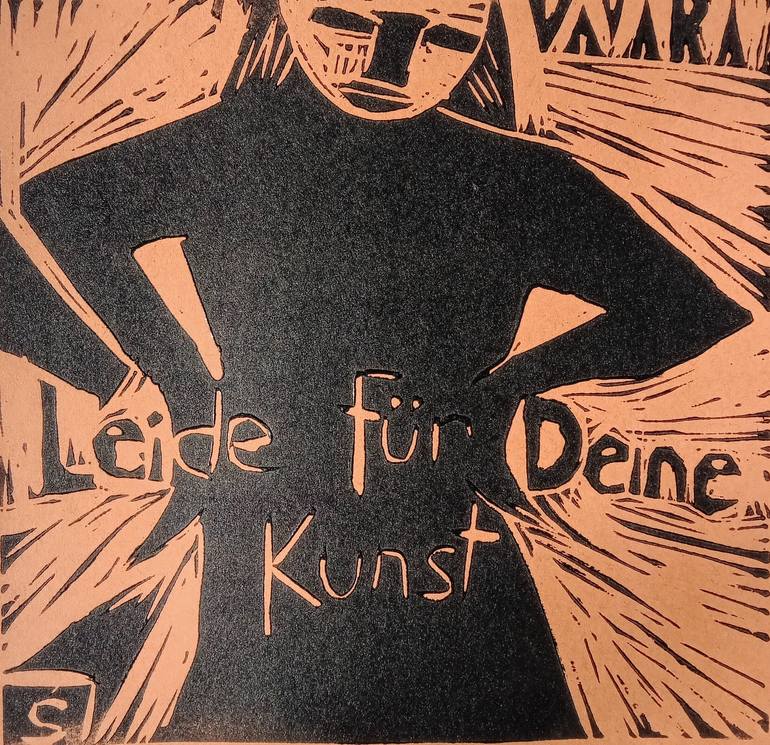 Leide für Deine
Kunst
Ś